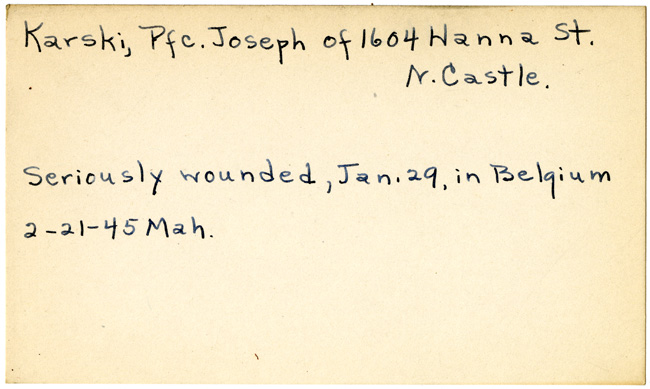 Karski, Pfc. Joseph of 1604 Hanna St.
N. Castle.
Seriously wounded, Jan. 29, in Belgium
2-21-45 Mah.